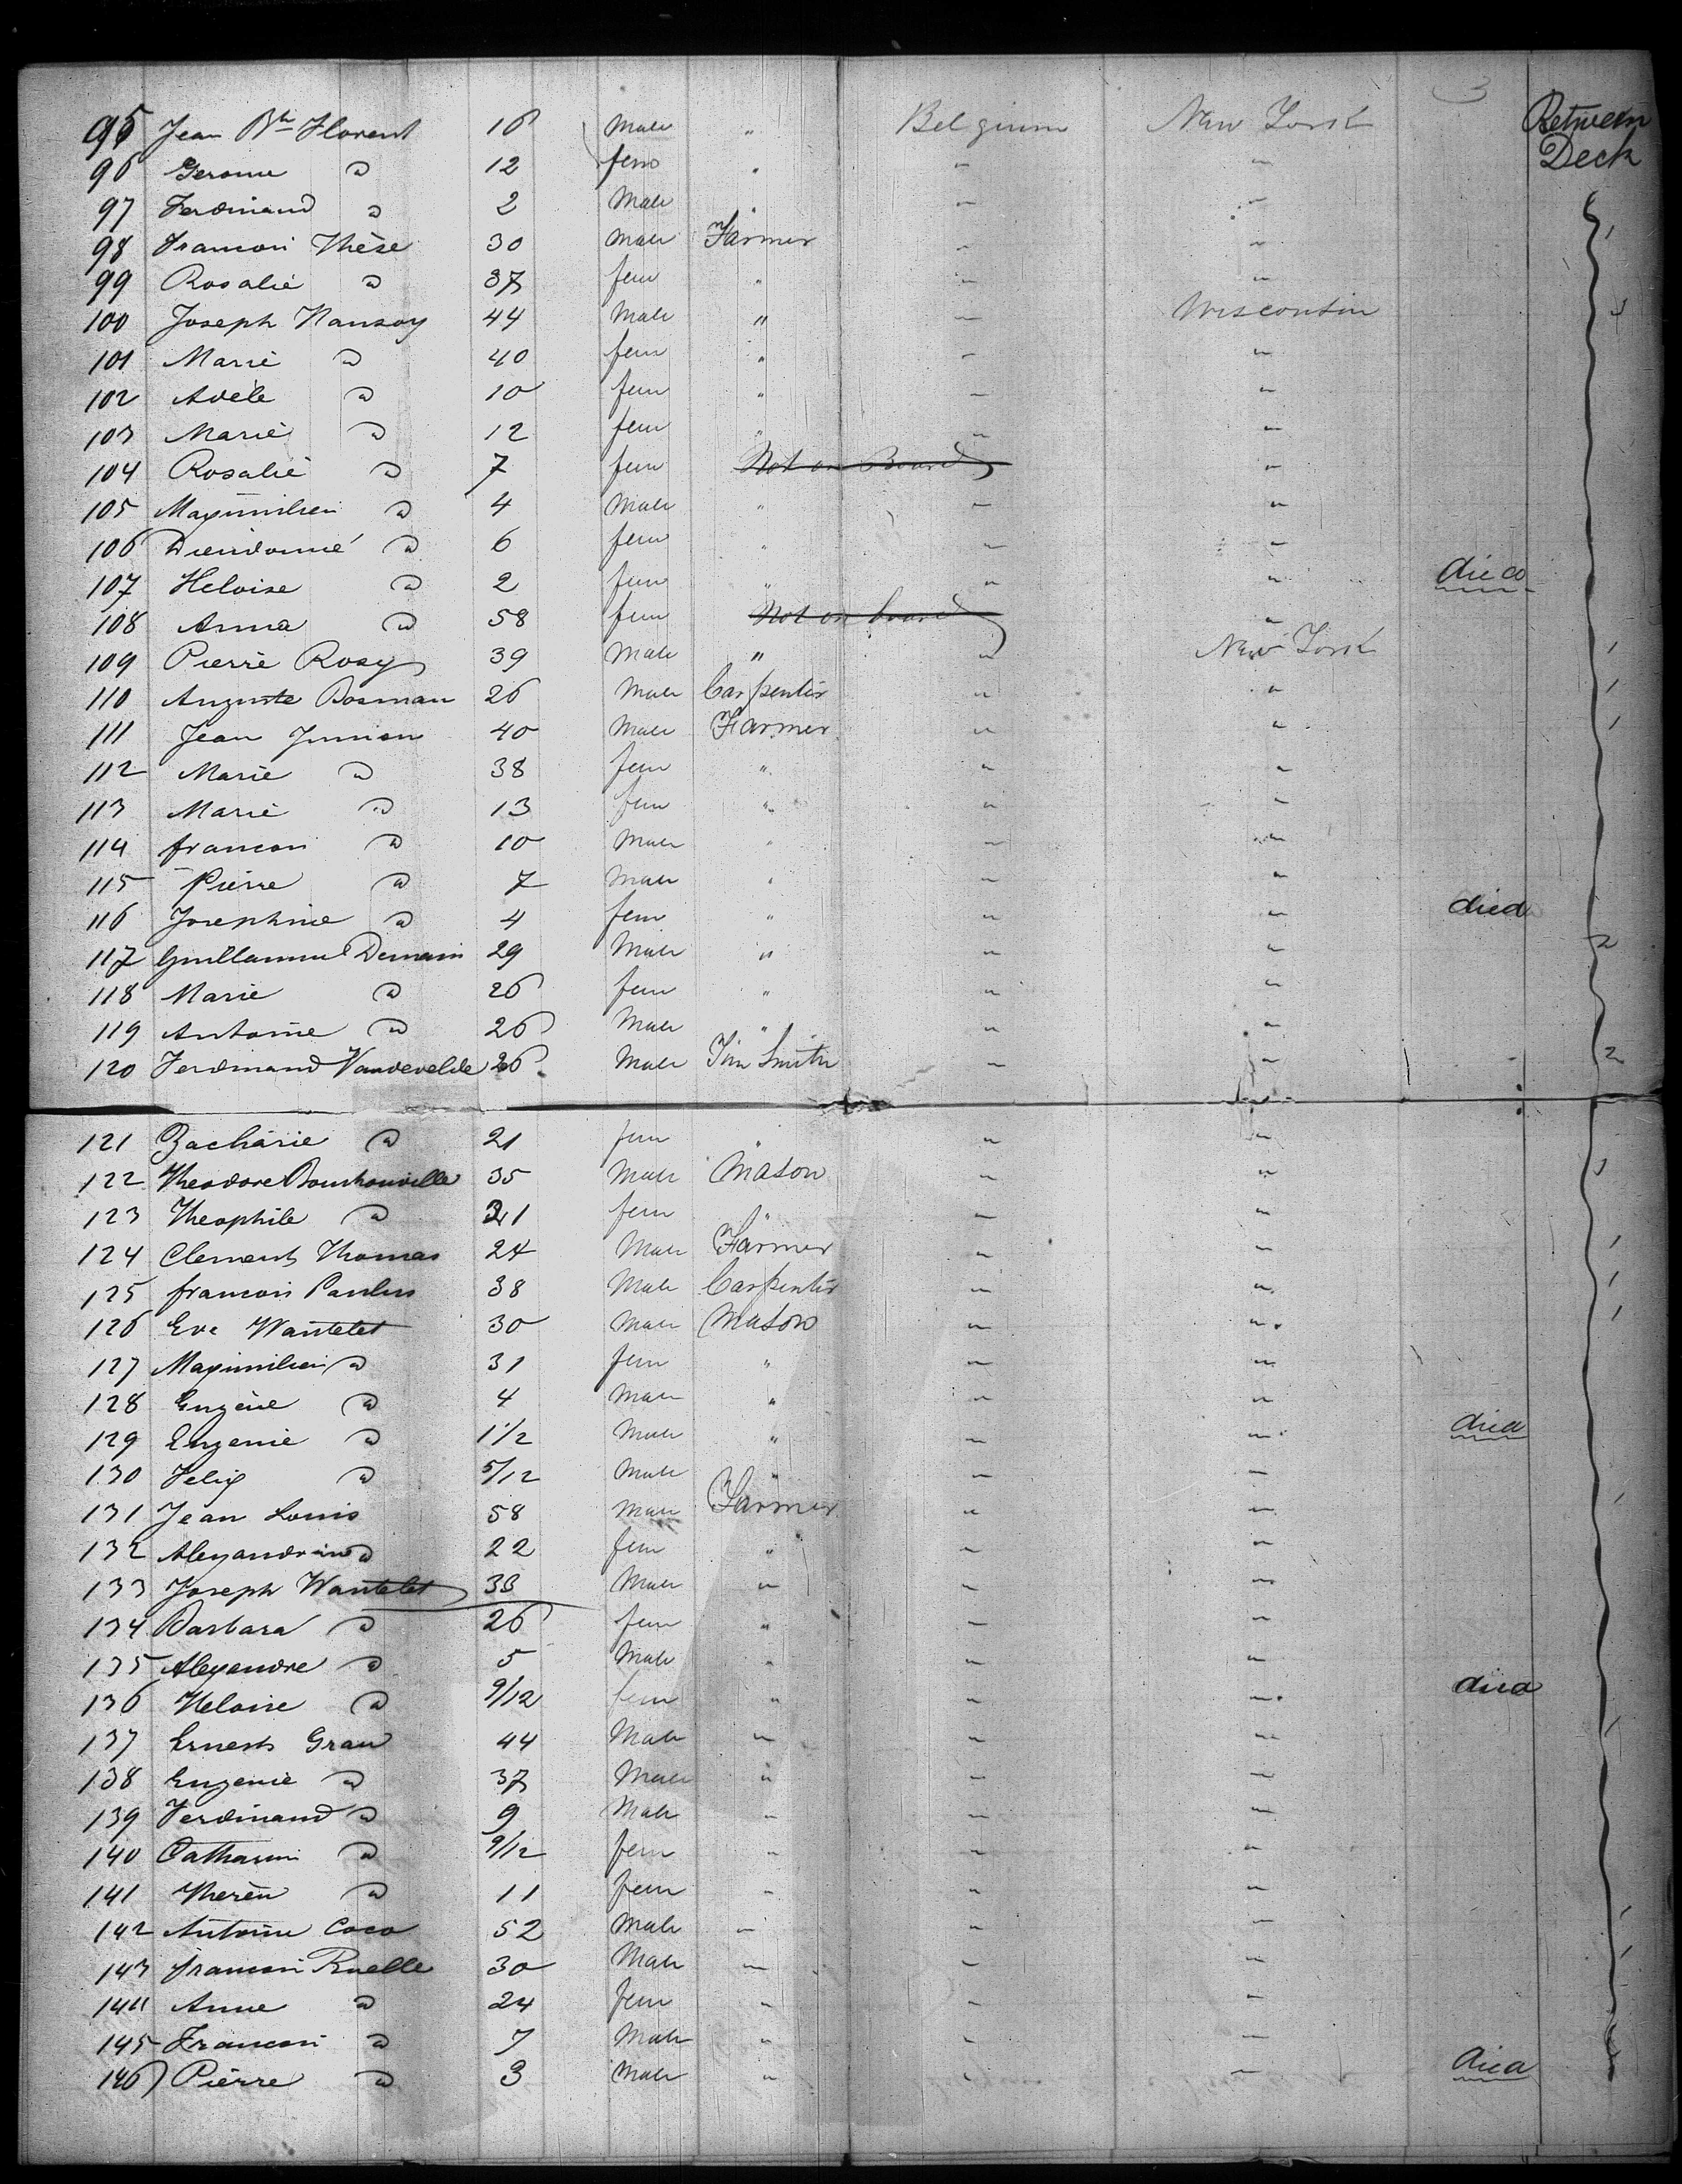 3
95 Jean Bte Florent 16 Male " Belgium New York Between
96 Gerome d 12 fem " " " Deck
97 Ferdinand d 2 Male " " "
98 Francois Thèse 30 Male Farmer " "
99 Rosalie d 37 fem " " "
100 Joseph 44 Male " " Wisconsin
101 Marie d 40 fem " " "
102 Adèle d 10 fem " " "
103 Marie d 12 fem " " "
104 Rosalie d 7 fem Not on Board "
105 Maximilien d 4 Male " " "
106 Dieudonné d 6 fem " " "
107 Heloise d 2 fem " " " died
108 Anna d 58 fem Not on board "
109 Pierre Rosy 39 Male " " New York
110 Auguste Bosman 26 Male Carpenter " "
111 Jean Junion 40 Male Farmer " "
112 Marie d 38 fem " " "
113 Marie d 13 fem " " "
114 francois d 10 Male " " "
115 Pierre d 7 Male " " "
116 Josephine d 4 fem " " " died
117 Guillaume Demain 29 Male " " " 2
118 Marie d 26 fem " " "
119 Antoine d 26 Male " " "
120 Ferdinand Vandevelde 26 Male Tin Smith " " 2
121 Zacharie d 21 fem " " "
122 Theodore 35 Male Mason " "
123 Theophile d 21 fem " " "
124 Clement Thomas 24 Male Farmer " "
125 francois Paulus 38 Male Carpenter " "
126 Eve Wautelet 30 Male Mason " "
127 Maximilien d 31 fem " " "
128 Eugène d 4 Male " " "
129 Eugenie d 1 1/2 Male " " " died
130 Felix d 5/12 Male " " "
131 Jean Louis 58 Male Farmer " "
132 Alexandrine d 22 fem " " "
133 Joseph Wautelet 33 Male " " "
134 Barbara d 26 fem " " "
135 Alexandre d 5 Male " " "
136 Heloise d 9/12 fem " " " died
137 Ernest Grau 44 Male " " "
138 Eugenie d 37 Male " " "
139 Ferdinand d 9 Male " " "
140 Catharine d 9/12 fem " " "
141 d 11 fem " " "
142 Antoine Coco 52 Male " " "
143 francois Ruelle 30 Male " " "
144 Anne d 24 fem " " "
145 Francois d 7 Male " " "
146 Pierre d 3 Male " " " died